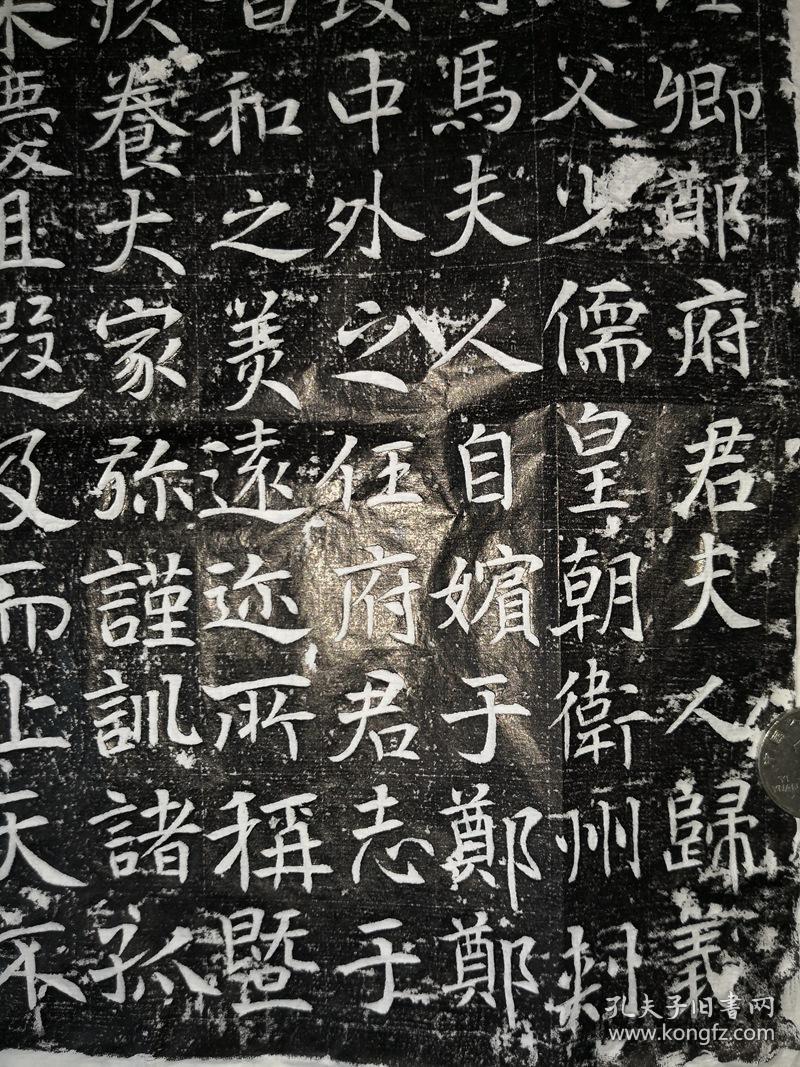 卿鄭府君夫人歸義
父少儒皇朝衛州刺
馬夫人自嬪于鄭鄭
中外之任府君志于
和之美遠迩所稱暨
養大家弥謹訓諸孤
慶且遐及而上天不
孔夫子旧书网
www.kongfz.com